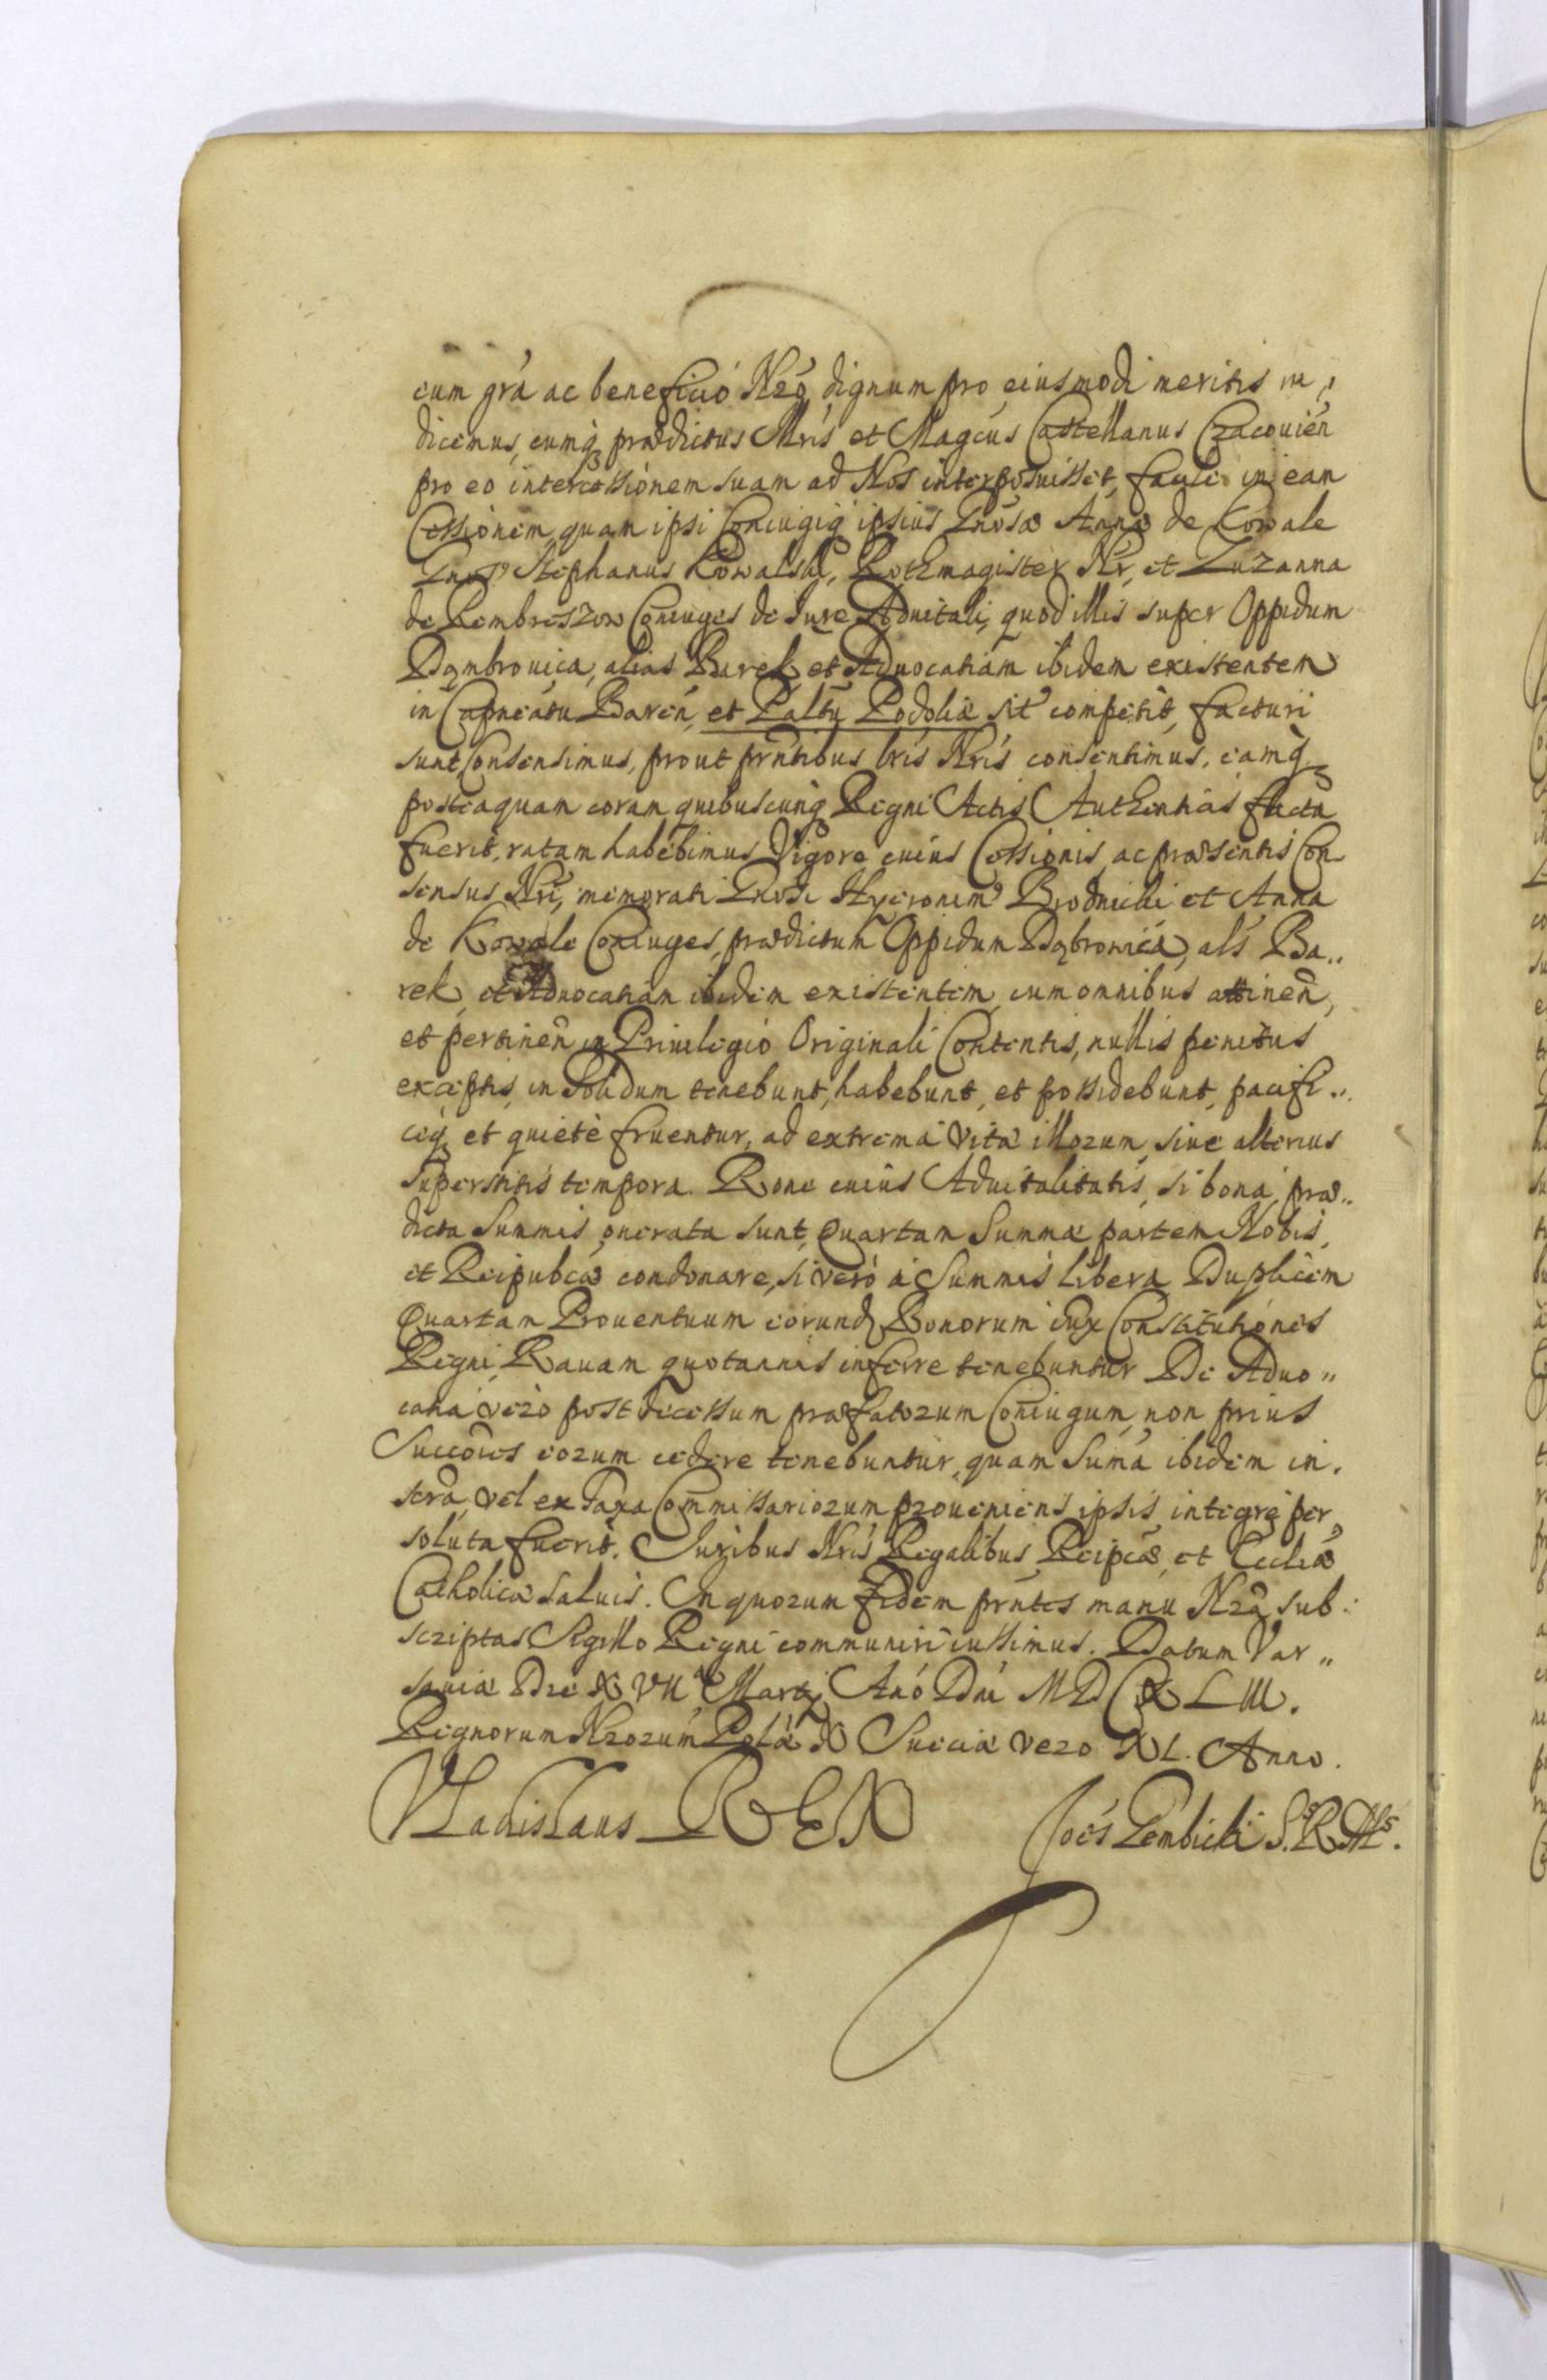 cum grã ac beneficiô Nrô, dignum pro eiusmodi meritis iu„
dicemus, cumq; prædictus Illris et Magcus Castellanus Cracouien
pro eo intercessionem suam ad Nos interposuisset, facile in eam
Cessionem, quam ipsi Coniugiq; ipsius Gnosæ Annæ de Kowale
Gnosus Stephanus Kowalski, Rothmagister Nr, et Zuzanna
de Rembreszow Coniuges de Iure Aduitali, quod illis super Oppidum
Dąmbrouica, alias Barek, et Aduocatiam ibidem existentem
in Capneatu Baren, et Paltu Podoliæ sit competit, facturi
sunt Consensimus, prout prntibus lris Nris consentimus, eamq;
posteaquam coram quibuscunq; Regni Actis Authenticis facta
fuerit, ratam habebimus Vigore cuius Cessionis, ac præsentis Con
sensus Nri, memorati Gnosi Hyeronimus Brodnicki et Anna
de Kowale Coniuges, prædictum Oppidum Dąbrowica, als Ba„
rek, et Aduocatiam ibidem existentem, cum omnibus attinen,
et pertinen in Priuilegio Originali Contentis, nullis penitus
exceptis, in Solidum tenebunt, habebunt, et possidebunt, pacifi„
ceq; et quietè fruentur, ad extrema vitæ illorum, siue alterius
superstitis tempora. Rone cuius Aduitalitatis, si bona præ„
dicta Summis onerata sunt, Quartam Summæ partem Nobis,
et Reipubcæ condonare, si verò à Summis libera Duplicem
Quartam Prouentuum eorund Bonorum iux Constitutiones
Regni, Rauam quotannis inferre tenebuntur De Aduo„
catia verò post decessum præfatorum Coniugum, non prius
Succores eorum cedere tenebuntur, quam Suma ibidem in.
scra, vel ex Taxa Commissariorum proueniens ipsis integre per„
soluta fuerit. Iuribus Nris Regalibus, Reipcæ, et Eccliæ
Catholicæ saluis. In quorum fidem prntes manu Nra sub„
scriptas Sigillo Regni communiri iussimus. Datum Var„
sauiæ Die XVII Marty Anô Dni MDCXLIII.
Regnorum Nrorum Polæ X Sueciæ vero XI. Anno.
Vladislaus REX Joes Gembicki S.R.Mtis.